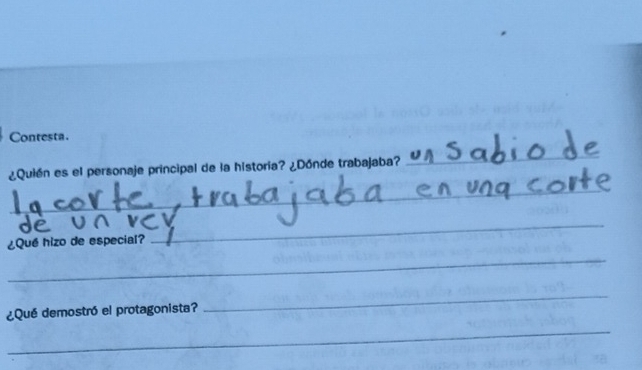 Contesta.
¿Quién es el personaje principal de la historia? ¿Dónde trabajaba? un sabio de
la corte, trabajaba en una corte
de un rey
¿Qué hizo de especial?
¿Qué demostró el protagonista?